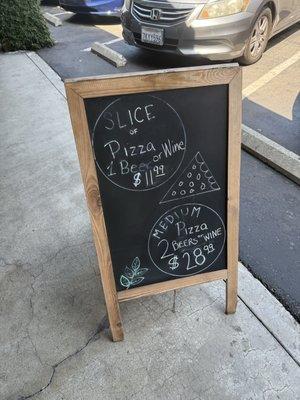 SLICE
OF
Pizza
1 Beer or Wine
$11.99
MEDIUM
Pizza
2 Beers or Wine
$28.99